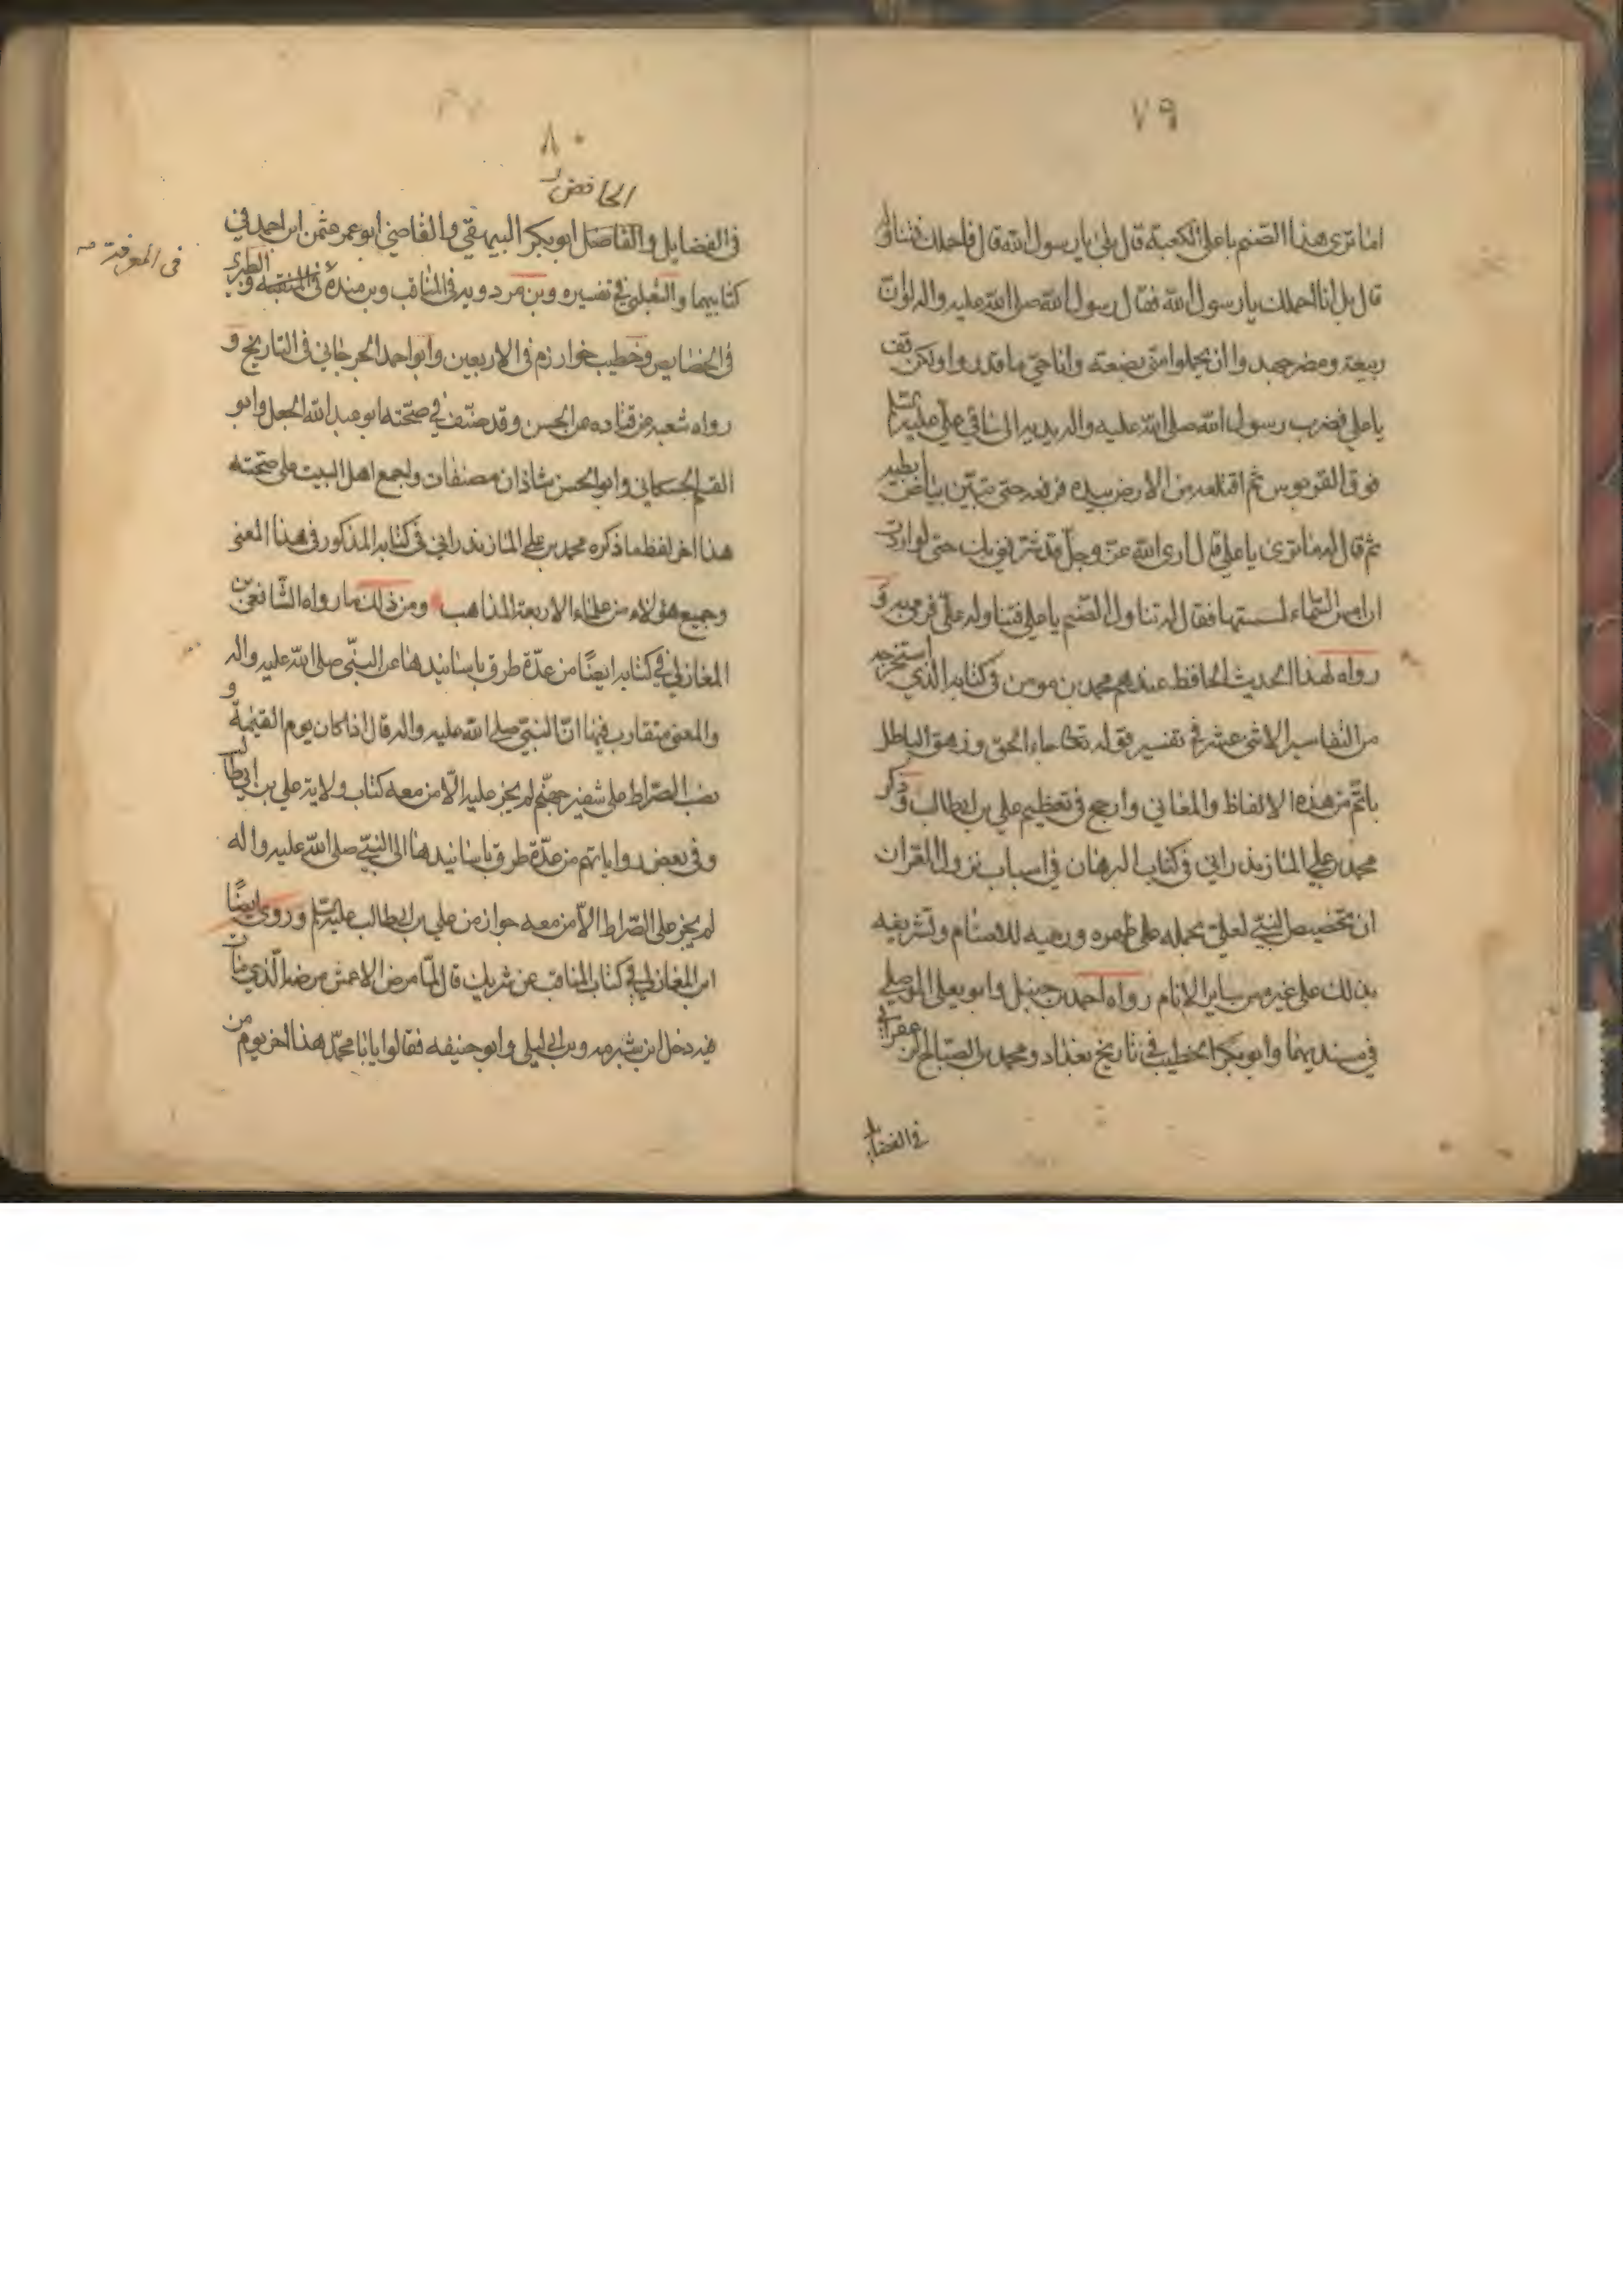 ٧٩
اما ترى هذا الصنم باعلى الكعبة قال بلى يا رسول الله قال فاحملك فتناوله
قال بل انا احملك يا رسول الله فقال رسول الله صلى الله عليه واله لو ان
ربيعة ومضر جهدوا ان يحملوا منى بضعة وانا حى ما قدروا ولكن قف
يا على فضرب رسول الله صلى الله عليه واله يديه الى ساقى على
فوق القربوس ثم اقتلعه من الارض بيده فرفعه حتى تبين بياض ابطيه
ثم قال له ما ترى يا على قال ارى الله عز وجل قد شرفنى بك حتى لو اردت
ان امس السماء لمستها فقال له تناول الصنم يا على فتناوله على فرمى به و
رواه لهذا الحديث الحافظ عندهم محمد بن مومن فى كتابه الذى استخرجه
من التفاسير الاثنى عشر فى تفسير قوله تعالى جاء الحق وزهق الباطل
باتم من هذه الالفاظ والمعانى وارجح فى تعظيم على بن ابيطالب وذكر
محمد بن على المازندرانى فى كتاب البرهان فى اسباب نزول القران
ان تخصيص النبى لعلى بحمله على ظهره ورميه للاصنام وتشريفه
بذلك على غيره من ساير الانام رواه احمد بن حنبل وابو يعلى الموصلى
فى مسنديهما وابو بكر الخطيب فى تاريخ بغداد ومحمد بن الصباح الزعفرانى
فى الفضايل
٨٠
الحافض
فى الفضايل والفاضل ابو بكر البيهقى والقاضى ابو عمر عثمن ابن احمد فى
كتابيهما والثعلبى فى تفسيره وبن مردويه فى المناقب وبن منده فى المنقبة والطبرى
فى المعرفة
فى الخصايص وخطيب خوارزم فى الاربعين وابو احمد الجرجانى فى التاريخ و
رواه شعبه عن قتاده عن الحسن وقد صنف فى صحته ابو عبد الله الجعل وابو
القسم الحسكانى وابو الحسن شاذان مصنفات واجمع اهل البيت على صحته
هذا اخر لفظ ما ذكره محمد بن على المازندرانى فى كتابه المذكور فى هذا المعنى
وجميع هؤلاء من علماء الاربعة المذاهب ومن ذلك ما رواه الشافعى بن
المغازلى فى كتابه ايضا من عدة طرق باسانيدها عن النبى صلى الله عليه واله
والمعنى متقارب فيها ان النبى صلى الله عليه واله قال اذا كان يوم القيمة و
نصب الصراط على شفير جهنم لم يجز عليه الا من معه كتاب ولاية على بن ابيطالب
وفى بعض رواياتهم من عدة طرق باسانيدها الى النبى صلى الله عليه واله
لم يجز على الصراط الا من معه جواز من على بن ابيطالب وروى ايضا
ابن المغازلى فى كتاب المناقب عن شريك قال لما مرض الاعمش مرضه الذى مات
فيه دخل ابن شبرمه وبن ابى ليلى وابو حنيفه فقالوا يا ابا محمد هذا اخر يوم من